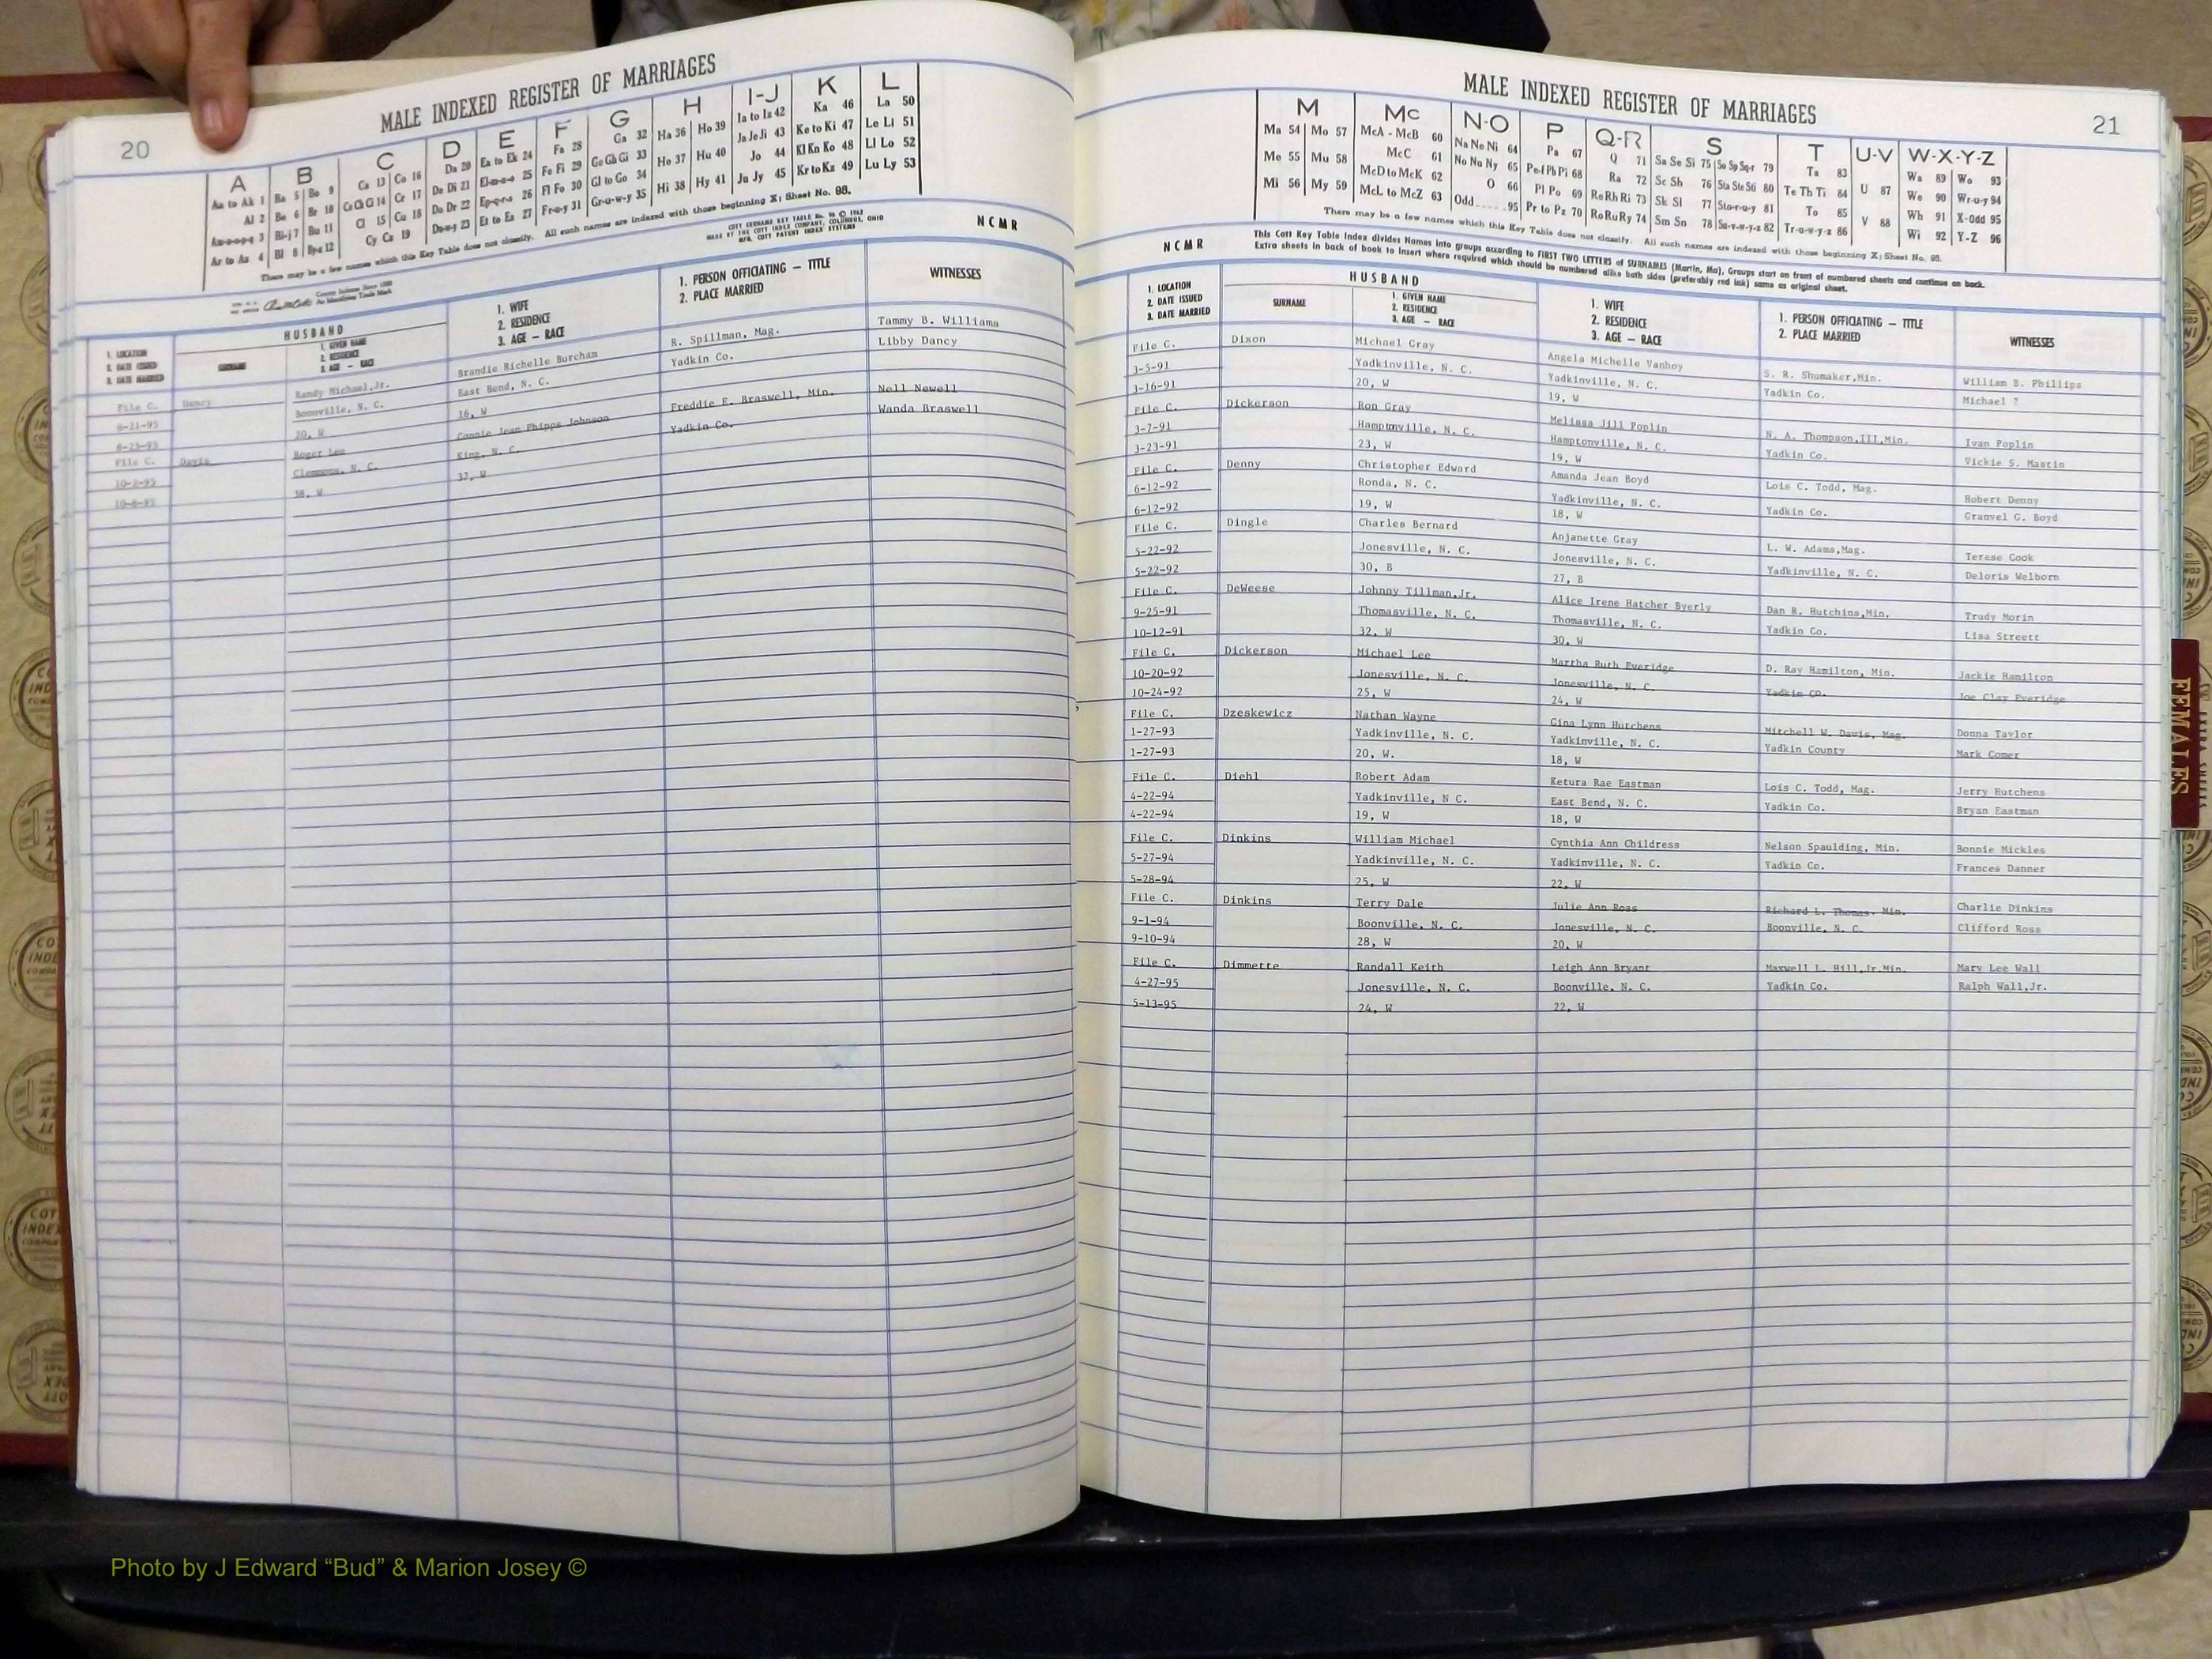 20
MALE INDEXED REGISTER OF MARRIAGES
A B C D E F G H I-J K L
Aa to Ak 1 Ba 5 Bo 9 Ca 13 Co 16 Da 20 Ea to Ek 24 Fa 28 Ga 32 Ha 36 Ho 39 Ia to Iz 42 Ka 46 La 50
Al 2 Be 6 Br 10 Ce Ch Ci 14 Cr 17 De Di 21 El-m-n-o 25 Fe Fi 29 Ge Gh Gi 33 He 37 Hu 40 Ja Je Ji 43 Ke to Ki 47 Le Li 51
Am-n-o-p-q 3 Bi-j 7 Bu 11 Cl 15 Cu 18 Do Dr 22 Ep-q-r-s 26 Fl Fo 30 Gl to Go 34 Hi 38 Hy 41 Jo 44 Kl Kn Ko 48 Ll Lo 52
Ar to Az 4 Bl 8 By-z 12 Cy Cz 19 Du-w-y 23 Et to Ez 27 Fr-u-y 31 Gr-u-w-y 35 Ju Jy 45 Kr to Kz 49 Lu Ly 53
There may be a few names which this Key Table does not classify. All such names are indexed with those beginning X; Sheet No. 98.
COTT SURNAME KEY TABLE
MADE BY THE COTT INDEX COMPANY, COLUMBUS, OHIO
MFG. COTT PATENT INDEX SYSTEMS
NCMR
HUSBAND
1. LOCATION
2. DATE ISSUED
3. DATE MARRIED
SURNAME
1. GIVEN NAME
2. RESIDENCE
3. AGE — RACE
1. WIFE
2. RESIDENCE
3. AGE — RACE
1. PERSON OFFICIATING — TITLE
2. PLACE MARRIED
WITNESSES
File C. Dancy Randy Michael,Jr. Brandie Richelle Burcham R. Spillman, Mag. Tammy B. Williams
8-21-95 Boonville, N. C. East Bend, N. C. Yadkin Co. Libby Dancy
8-25-95 20, W 16, W
File C. Davis Roger Lee Connie Jean Phipps Johnson Freddie E. Braswell, Min. Nell Newell
10-2-95 Clemmons, N. C. King, N. C. Yadkin Co. Wanda Braswell
10-8-95 38, W 37, W
21
MALE INDEXED REGISTER OF MARRIAGES
M Mc N-O P Q-R S T U-V W-X-Y-Z
Ma 54 Mo 57 McA - McB 60 Na Ne Ni 64 Pa 67 Q 71 Sa Se Si 75 So Sp Sq-r 79 Ta 83 U 87 Wa 89 Wo 93
Me 55 Mu 58 McC 61 No Nu Ny 65 Pe-f Ph Pi 68 Ra 72 Sc Sh 76 Sta Ste Sti 80 Te Th Ti 84 V 88 We 90 Wr-u-y 94
Mi 56 My 59 McD to McK 62 O 66 Pl Po 69 Re Rh Ri 73 Sk Sl 77 Sto-r-u-y 81 To 85 Wh 91 X-Odd 95
McL to McZ 63 Odd 95 Pr to Pz 70 Ro Ru Ry 74 Sm Sn 78 Su-v-w-y-z 82 Tr-u-w-y-z 86 Wi 92 Y-Z 96
There may be a few names which this Key Table does not classify. All such names are indexed with those beginning X; Sheet No. 98.
This Cott Key Table Index divides Names into groups according to FIRST TWO LETTERS of SURNAMES (Martin, Ma), Groups start on front of numbered sheets and continue on back.
Extra sheets in back of book to insert where required which should be numbered alike both sides (preferably red ink) same as original sheet.
NCMR
HUSBAND
1. LOCATION
2. DATE ISSUED
3. DATE MARRIED
SURNAME
1. GIVEN NAME
2. RESIDENCE
3. AGE — RACE
1. WIFE
2. RESIDENCE
3. AGE — RACE
1. PERSON OFFICIATING — TITLE
2. PLACE MARRIED
WITNESSES
File C. Dixon Michael Gray Angela Michelle Vanhoy S. R. Shumaker,Min. William B. Phillips
3-5-91 Yadkinville, N. C. Yadkinville, N. C. Yadkin Co. Michael ?
3-16-91 20, W 19, W
File C. Dickerson Ron Gray Melissa Jill Poplin N. A. Thompson,III,Min. Ivan Poplin
3-7-91 Hamptonville, N. C. Hamptonville, N. C. Yadkin Co. Vickie S. Mastin
3-23-91 23, W 19, W
File C. Denny Christopher Edward Amanda Jean Boyd Lois C. Todd, Mag. Robert Denny
6-12-92 Ronda, N. C. Yadkinville, N. C. Yadkin Co. Granvel G. Boyd
6-12-92 19, W 18, W
File C. Dingle Charles Bernard Anjanette Gray L. W. Adams,Mag. Terese Cook
5-22-92 Jonesville, N. C. Jonesville, N. C. Yadkinville, N. C. Deloris Welborn
5-22-92 30, B 27, B
File C. DeWeese Johnny Tillman,Jr. Alice Irene Hatcher Byerly Dan R. Hutchins,Min. Trudy Morin
9-25-91 Thomasville, N. C. Thomasville, N. C. Yadkin Co. Lisa Streett
10-12-91 32, W 30, W
File C. Dickerson Michael Lee Martha Ruth Everidge D. Ray Hamilton, Min. Jackie Hamilton
10-20-92 Jonesville, N. C. Jonesville, N. C. Yadkin Co. Joe Clay Everidge
10-24-92 25, W 24, W
File C. Dzeskewicz Nathan Wayne Gina Lynn Hutchens Mitchell W. Davis, Mag. Donna Taylor
1-27-93 Yadkinville, N. C. Yadkinville, N. C. Yadkin County Mark Comer
1-27-93 20, W. 18, W
File C. Diehl Robert Adam Ketura Rae Eastman Lois C. Todd, Mag. Jerry Hutchens
4-22-94 Yadkinville, N C. East Bend, N. C. Yadkin Co. Bryan Eastman
4-22-94 19, W 18, W
File C. Dinkins William Michael Cynthia Ann Childress Nelson Spaulding, Min. Bonnie Mickles
5-27-94 Yadkinville, N. C. Yadkinville, N. C. Yadkin Co. Frances Danner
5-28-94 25, W 22, W
File C. Dinkins Terry Dale Julie Ann Ross Richard L. Thomas, Min. Charlie Dinkins
9-1-94 Boonville, N. C. Jonesville, N. C. Boonville, N. C. Clifford Ross
9-10-94 28, W 20, W
File C. Dimmette Randall Keith Leigh Ann Bryant Maxwell L. Hill,Jr.Min. Mary Lee Wall
4-27-95 Jonesville, N. C. Boonville, N. C. Yadkin Co. Ralph Wall,Jr.
5-13-95 24, W 22, W
FEMALES
Photo by J Edward “Bud” & Marion Josey ©